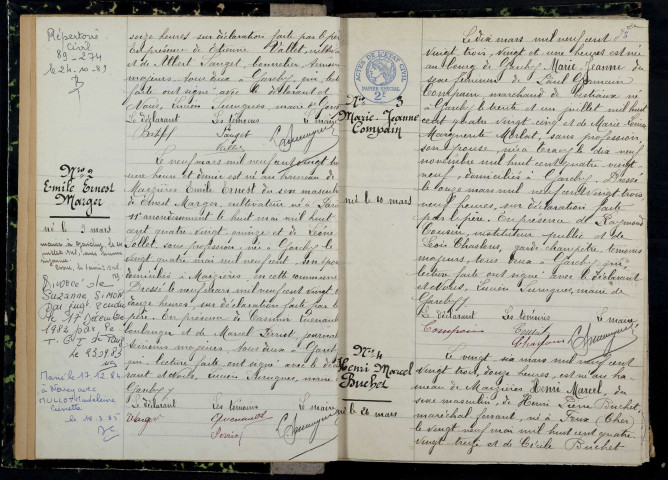 Répertoire
Civil
89-274
le 24.10.89
seize heures sur déclaration faite par le père
En présence de Etienne
et de Albert Sauget
majeurs, tous deux à Garchy, qui, lecture
faite ont signé avec le déclarant et
Nous, Lucien Surugues, maire de Garchy
Le déclarant Les témoins Le maire
Sauget
N° 2
Emile Ernest
Marger
né le 9 mars
Le neuf mars mil neuf cent vingt trois
une heure et demie est né au hameau de
Mazières Emile Ernest du sexe masculin
de Ernest Marger, cultivateur né à Paris
11e arrondissement le huit mai mil huit
cent quatre vingt quinze et de
sans profession, né à Garchy le
quatre mai mil neuf cent
domiciliés à Mazières, en cette commune
Dressé le neuf mars mil neuf cent vingt trois
douze heures, sur déclaration faite par le
père. En présence de Casimir
boulanger, et de Marcel journalier
témoins majeurs, tous deux à Garchy
qui, lecture faite, ont signé avec le déclarant
et Nous, Lucien Surugues, maire de
Garchy
Le déclarant Les témoins Le maire
Marger
Divorcé de
Suzanne SIMON
le 17 Décembre
1982 par le
T.G.I de
le 4.5.9.83
Marié le 17.12.84
à Nancy avec
MULLOT Madeleine
Ginette
le 18.3.85
83
ACTES DE L'ETAT CIVIL
PAPIER SPECIAL
2F
N° 3
Marie-Jeanne
Compain
née le 10 mars
Le dix mars mil neuf cent
vingt trois, vingt et une heures est née
au bourg de Garchy Marie Jeanne du
sexe féminin de Paul Germain
Compain, marchand de bestiaux né
à Garchy le trente et un juillet mil huit
cent quatre vingt cinq et de Marie Louise
Marguerite Merlat, sans profession,
son épouse, née à Tracy le dix neuf
novembre mil huit cent quatre vingt-
neuf, domiciliés à Garchy. Dressé
le douze mars mil neuf cent vingt trois
neuf heures, sur déclaration faite
par le père. En présence de Raymond
Cousin, instituteur public et de
Loïs Chasleus, garde champêtre, témoins
majeurs, tous deux à Garchy qui,
lecture faite ont signé avec le déclarant
et Nous, Lucien Surugues, maire de
Garchy
Le déclarant Les témoins Le maire
Compain
N° 4
Henri Marcel
Buchet
né le 26 mars
Le vingt six mars mil neuf cent
vingt trois, douze heures, est né au ha-
meau de Mazières Henri Marcel, du
sexe masculin, de Henri Pierre Buchet,
maréchal ferrant, né à Feux (Cher)
le vingt neuf mai mil huit cent quatre
vingt treize et de Cécile Buchet